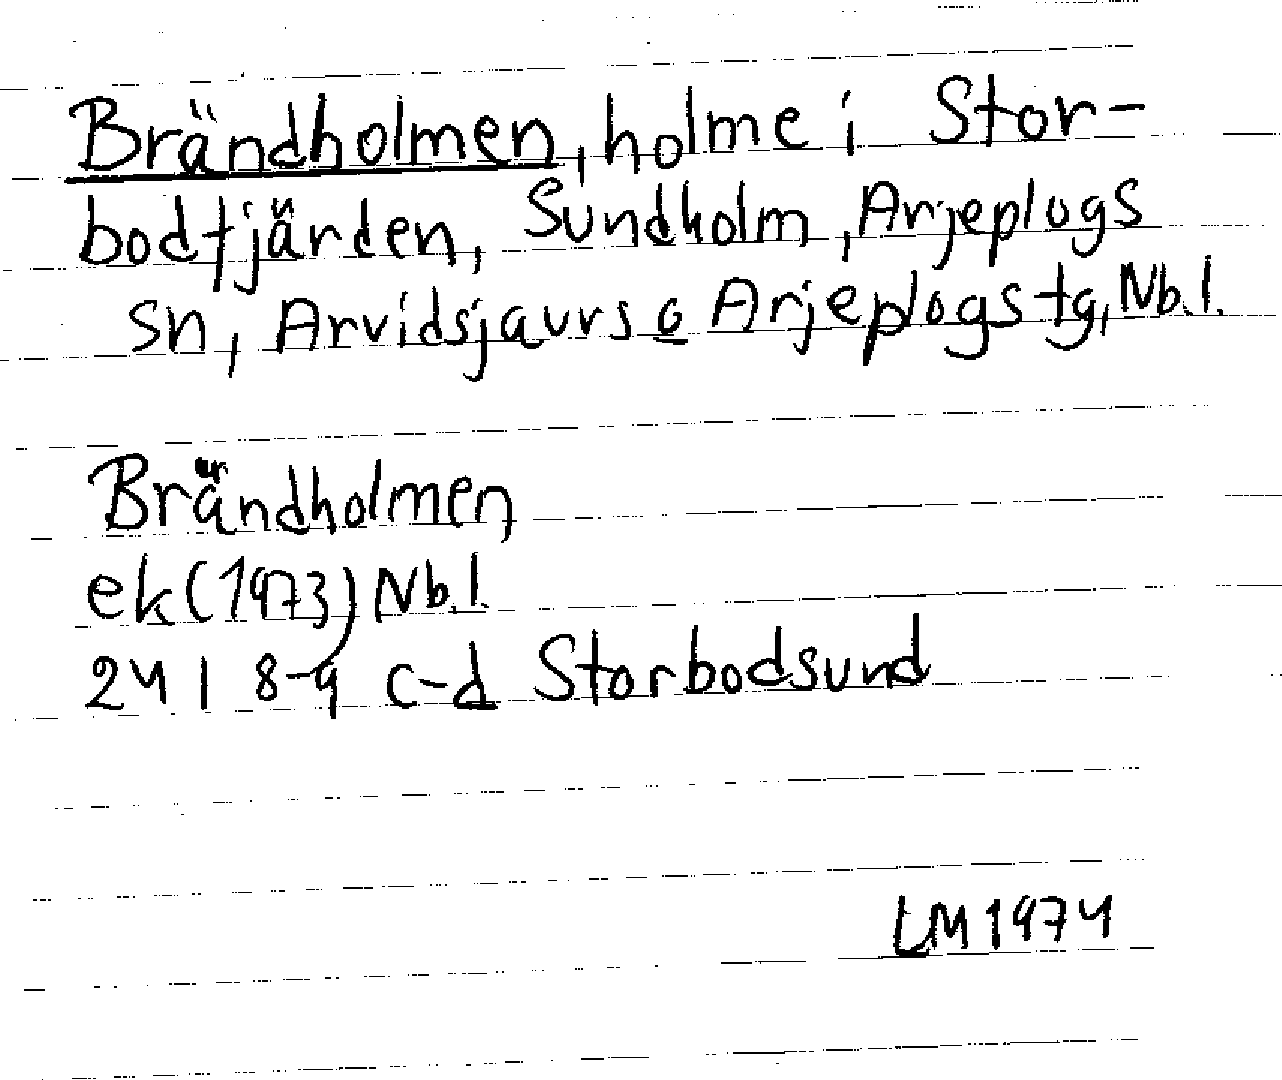 Brändholmen, holme i Stor-
bodtjärden, Sundholm, Arjeplogs
sn, Arvidsjaurs o Arjeplogs tg, Nb.l.
Brändholmen
ek (1973) Nb.l.
24 I 8-9 c-d Storbodsund
LM 1974